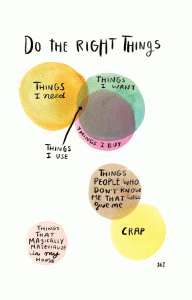 DO THE RIGHT THINGS
THINGS
I need
THINGS
I WANT
THINGS I BUY
THINGS
I USE
THINGS
PEOPLE WHO
DON'T KNOW
ME THAT WELL
give me
THINGS
THAT
MAGICALLY
MATERIALISE
in my
HOUSE
CRAP